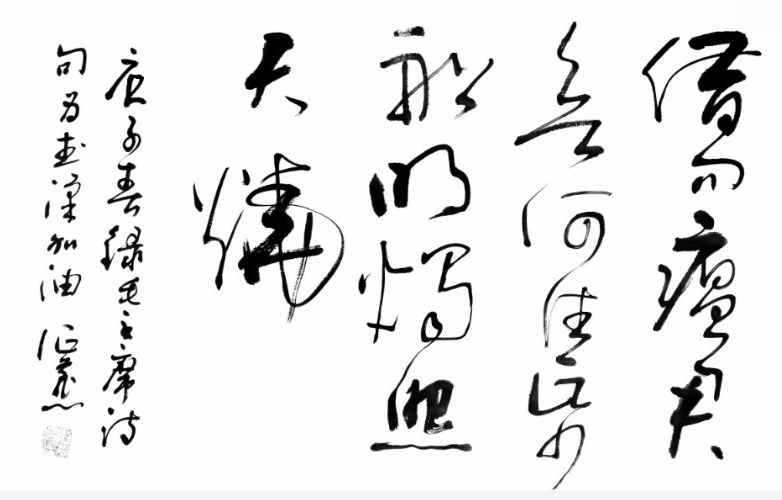 借问瘟君
欲何往纸
船明燭照
天燒
庚子春録毛主席诗
句为武漢加油